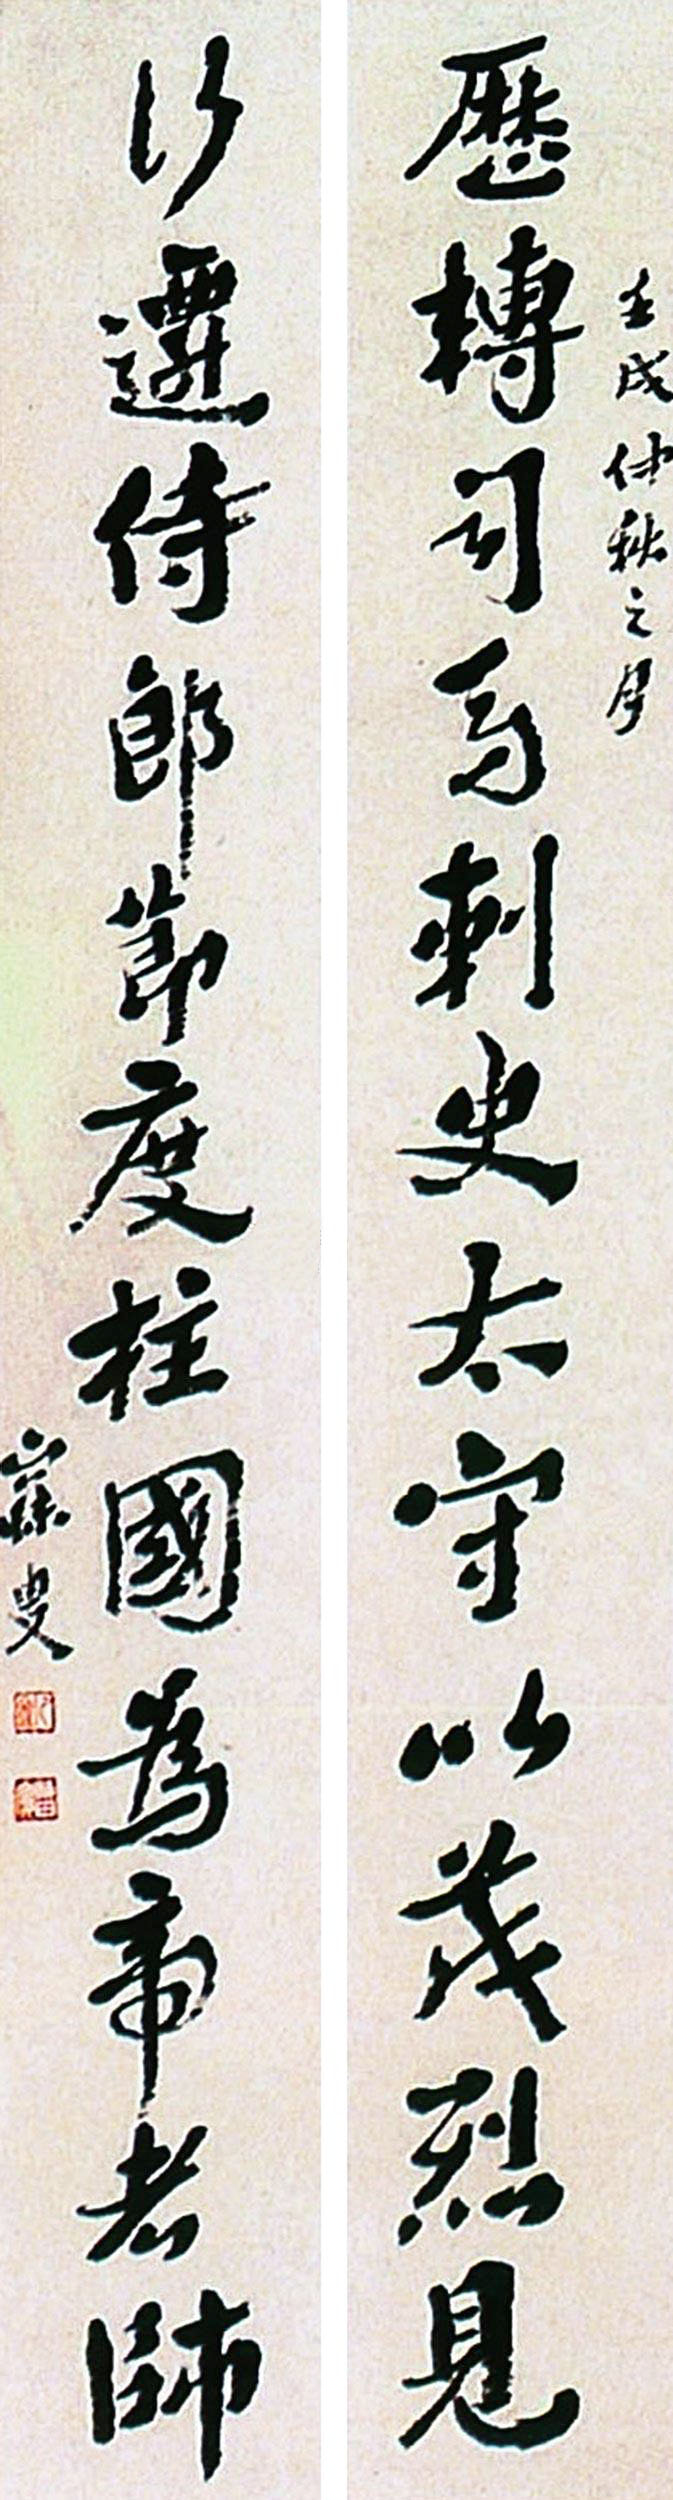 壬戌仲秋之月
歷轉司馬刺史太守以茂烈見
行遷侍郎節度柱國為帝者師
寐叟